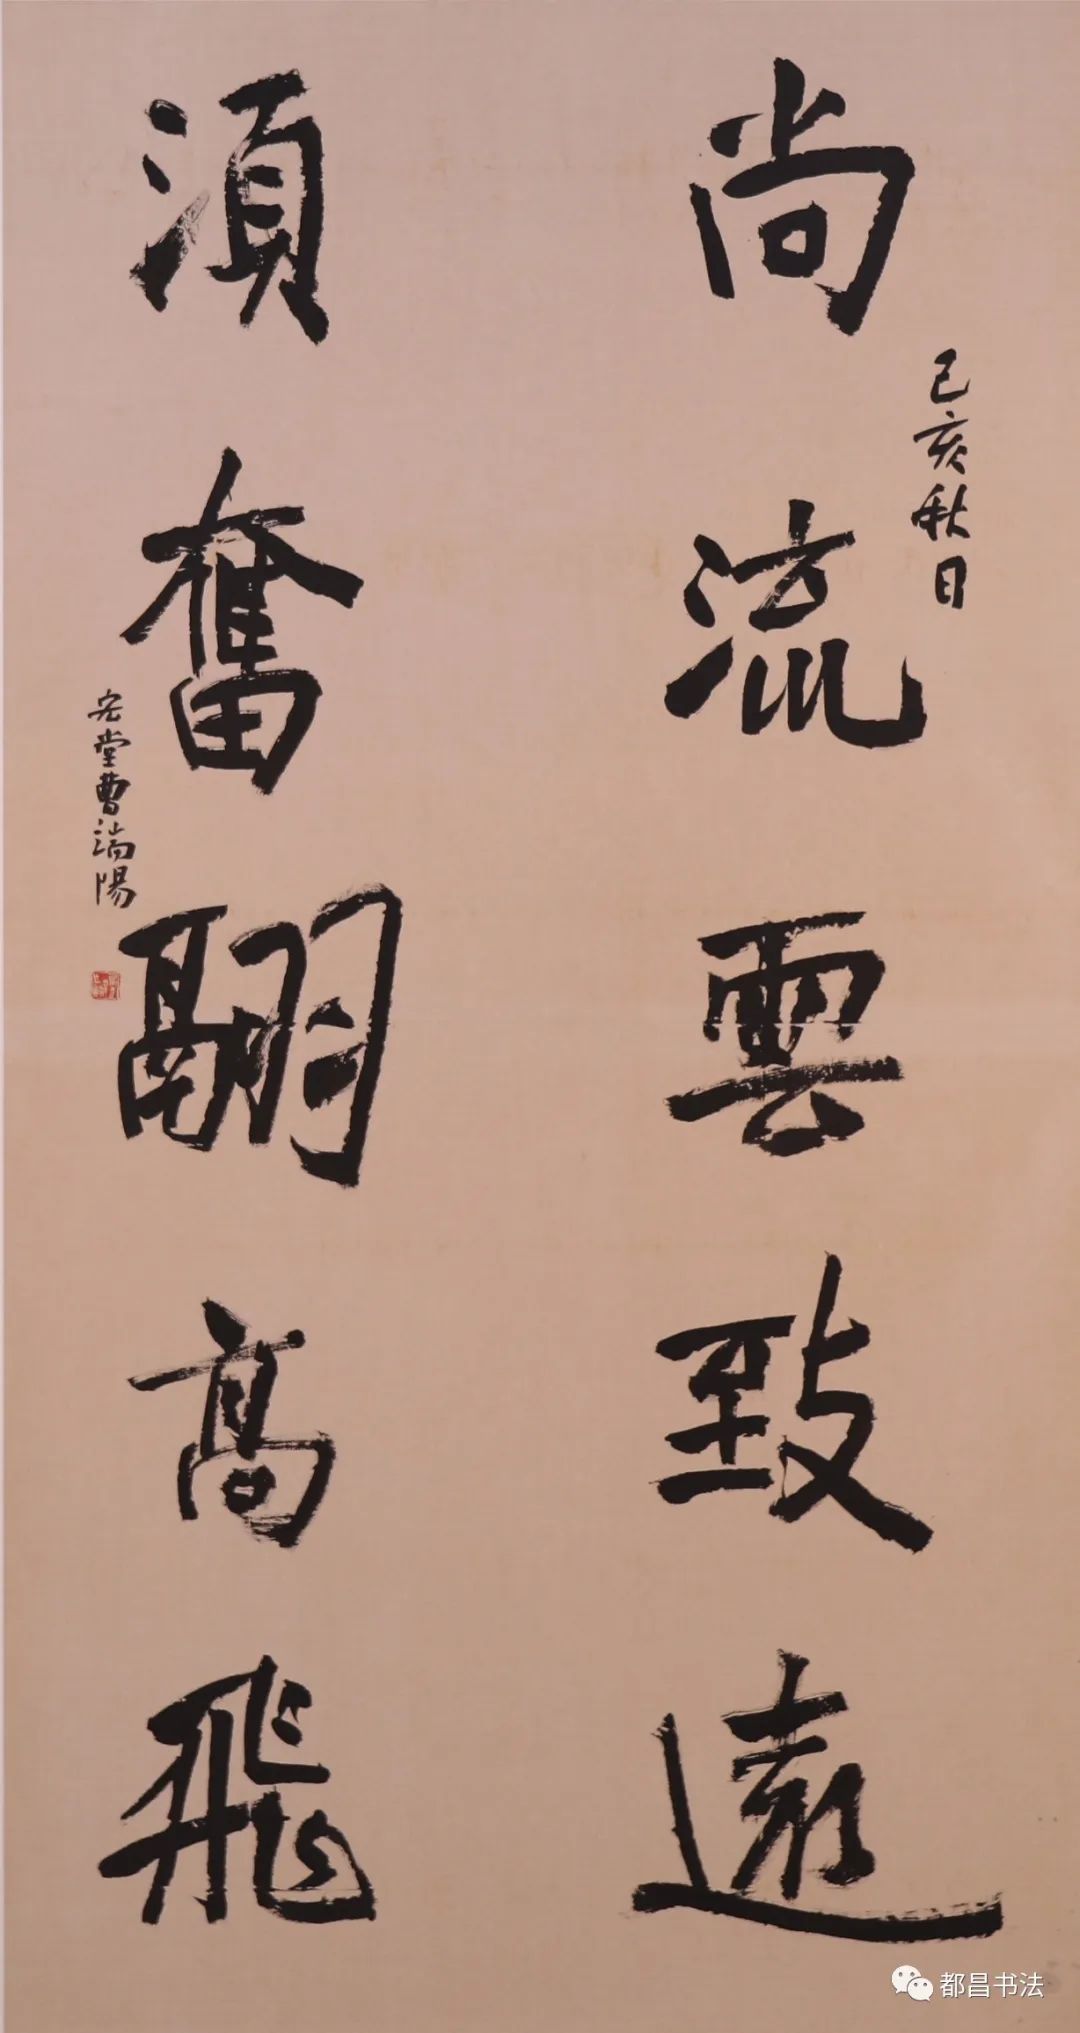 尚流雲致遠
己亥秋日
須奮翮高飛
宏堂曹端陽
都昌书法